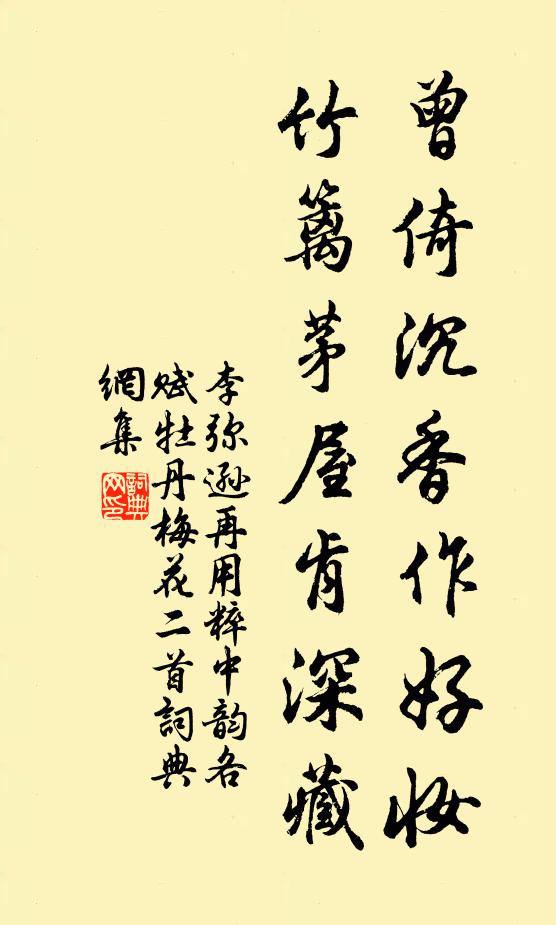 曾倚沉香作好妆
竹篱茅屋肯深藏
李弥逊再用粹中韵各
赋牡丹梅花二首詞典
網集
詞典
网印